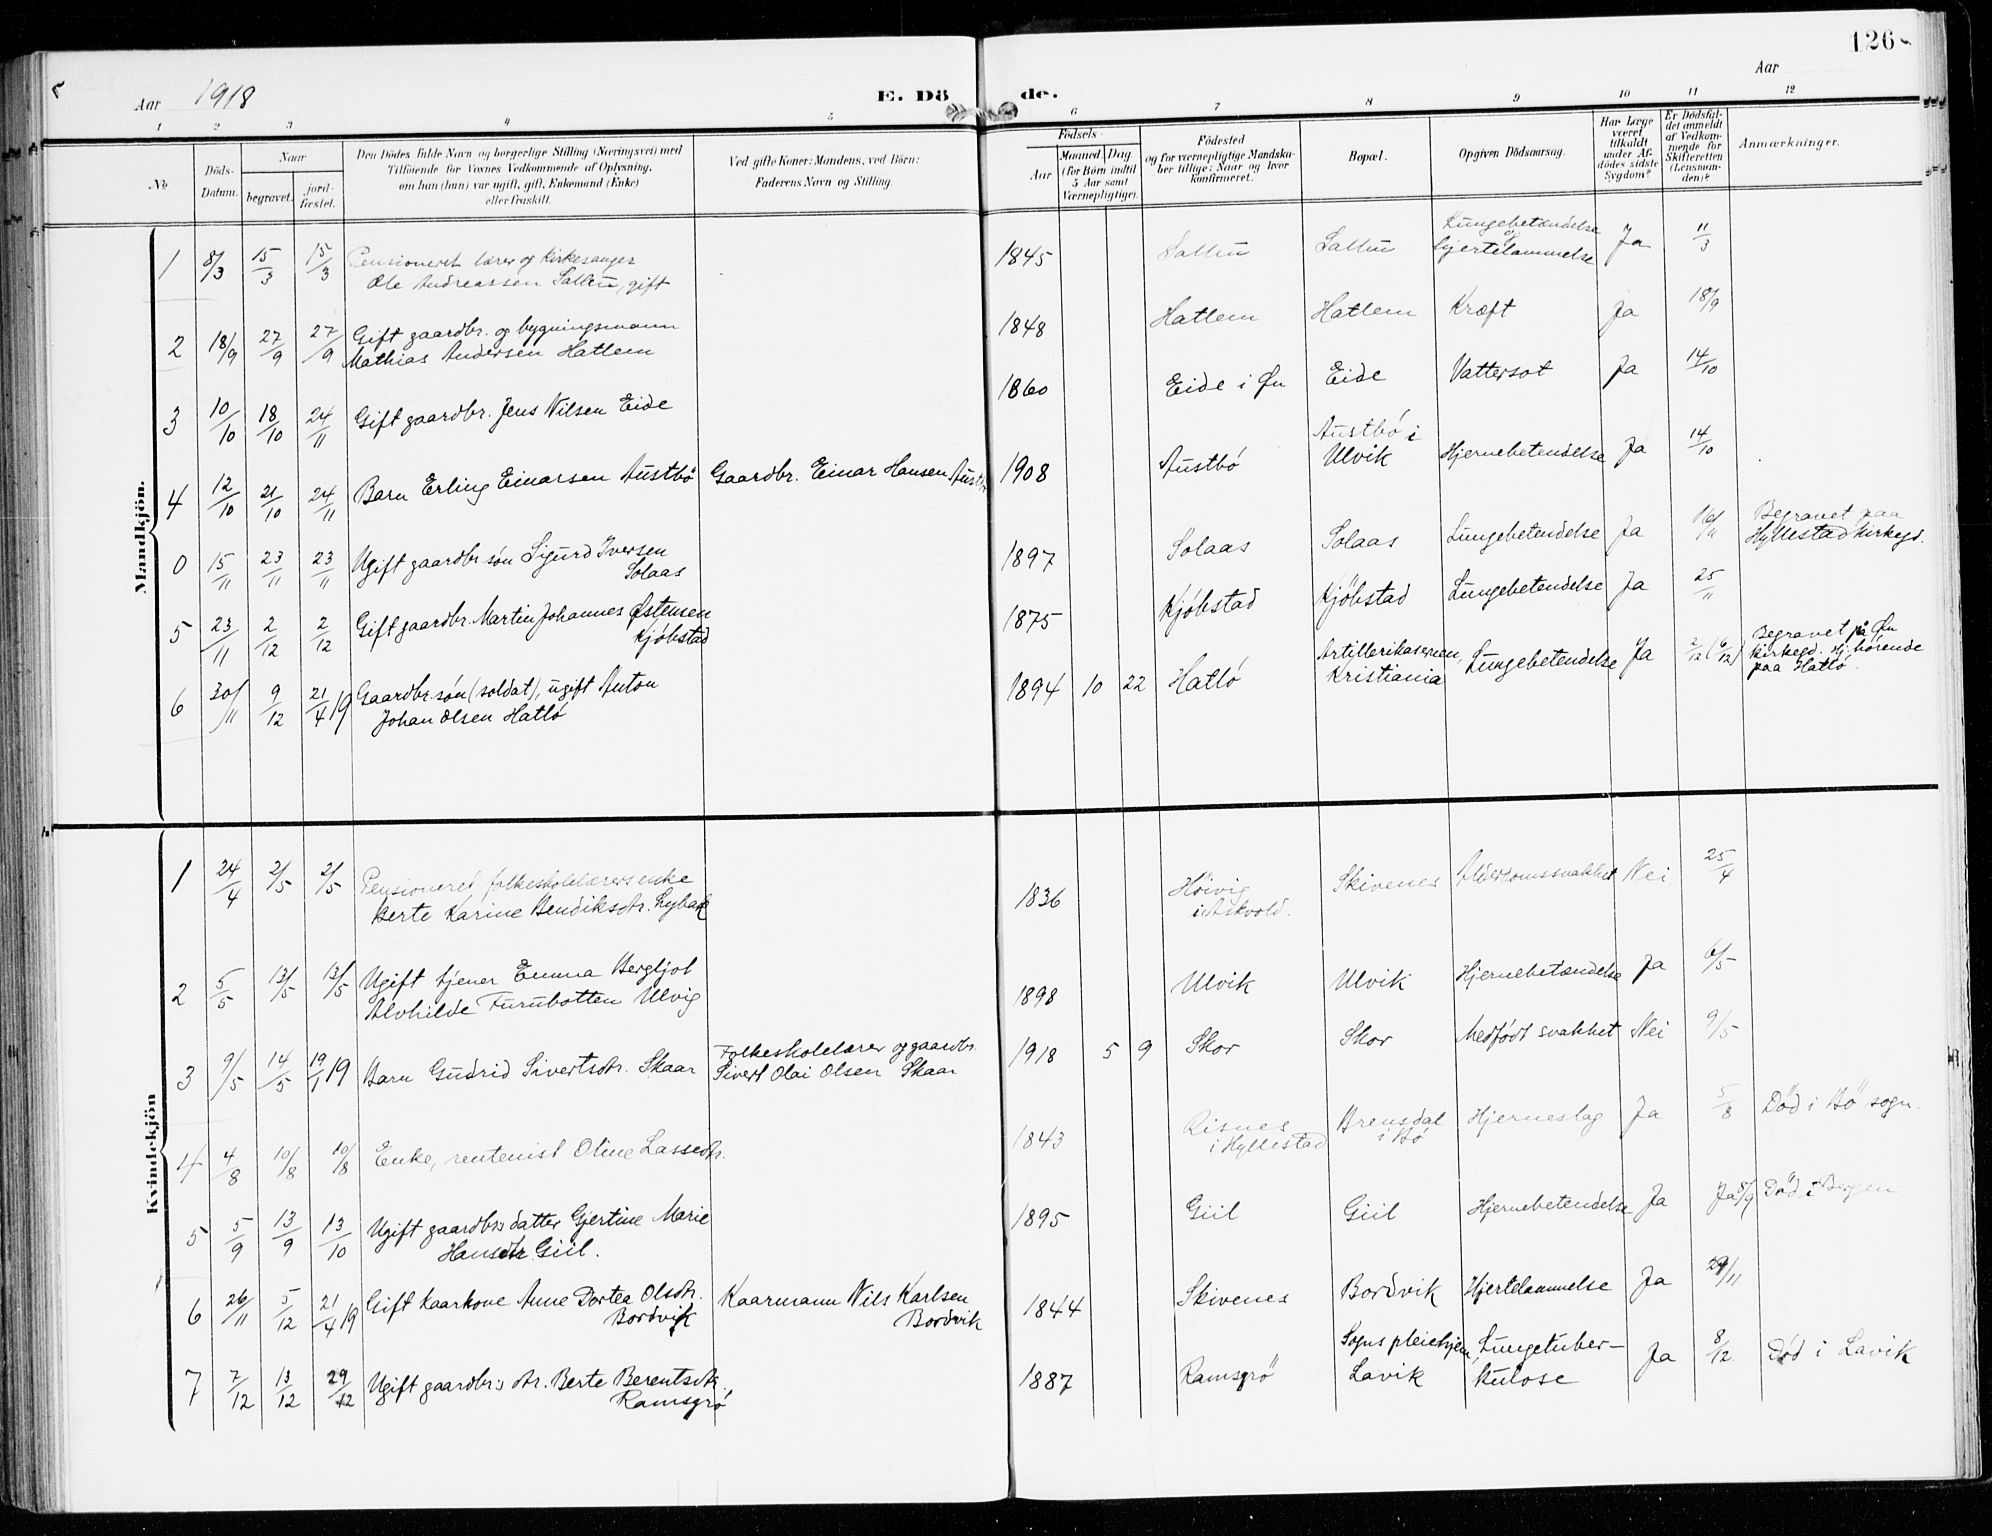 126
Aar 1918
E. Dö de.
Aar
1 2 3 4 5 6 7 8 9 10 11 12
No
Döds-Datum.
Naar
begravet.
jord-fæstet.
Den Dödes fulde Navn og borgerlige Stilling (Næringsvei) med
Tilföiende for Voxnes Vedkommende af Oplysning,
om han (hun) var ugift, gift, Enkemand (Enke)
eller fraskilt.
Ved gifte Koner: Mandens, ved Börn:
Faderens Navn og Stilling.
Födsels-
Aar
Maaned. Dag.
(for Börn indtil
5 Aar samt
Værnepligtige).
Födested
og for værnepligtige Mandska-
ber tillige: Naar og hvor
konfirmeret.
Bopæl.
Opgiven Dödsaarsag.
Har Læge
været
tilkaldt
under Af-
dödes sidste
Sygdom?
Er Dödsfal-
det anmeldt
af Vedkom-
mende for
Skifteretten
(Lensman-
den)?
Anmærkninger.
Mandkjön.
1 8/3 15/3 15/3 Pensioneret lærer og kirkesanger
Ole Andreassen Salbu, gift
1845 Salbu Salbu Lungebetændelse
og hjertelammelse Ja 11/3
2 18/9 27/9 27/9 Gift gaardbr. og bygningsmann
Mathias Andersen Hatlem
1848 Hatlem Hatlem Kræft Ja 18/9
3 10/10 18/10 24/11 Gift gaardbr. Jens Nilsen Eide
1860 Eide i Øn Eide Vattersot Ja 14/10
4 12/10 21/10 24/11 Barn Erling Einarsen Austbö Gaardbr. Einar Hansen Austbö
1908 Austbö Austbö i
Ulvik Hjernebetendelse Ja 14/10
0 15/11 23/11 23/11 Ugift gaardbr søn Sigurd Iversen
Solaas
1897 Solaas Solaas Lungebetendelse Ja 16/11 Begravet paa
Hyllestad kirkegd.
5 23/11 2/12 2/12 Gift gaardbr. Martin Johannes Østensen
Kjöbstad
1875 Kjöbstad Kjöbstad Lungebetendelse Ja 25/11
6 30/11 9/12 21/4 19 Gaardbr. søn (soldat), ugift Anton
Johan Olsen Hatlö
1894 10 22 Hatlö Artillerikasernen,
Kristiania Lungebetendelse Ja 2/12 (6/12) Begravet på Øn
kirkegd. Hj. hörende
paa Hatlö.
Kvindekjön
1 24/4 2/5 2/5 Pensioneret folkeskolelærers enke
Berte Karine Hendiksdtr. Lybæk
1836 Höivig
i Askvold. Skivenes Alderdomssvakhet Nei 25/4
2 5/5 13/5 13/5 Ugift tjener Emma Bergljot
Alvhilde Furubotten Ulvig
1898 Ulvik Ulvik Hjernebetændelse Ja 6/5
3 9/5 14/5 19/1 19 Barn Gudrid Sivertsdtr. Skaar Folkeskolelærer og gaardbr.
Sivert Olai Olsen Skaar
1918 5 9 Skor Skor Medfödt svakhet Nei 9/5
4 4/8 10/8 10/8 Enke, rentenist Oline Lassedtr.
1843 Risnes
i Hyllestad Brensdal
i Bö Hjerneslag Ja 5/8 Död i Bö sogn.
5 5/9 13/9 13/10 Ugift gaardbr:s datter Gjertine Marie
Hansdtr Giil.
1895 Giil Giil Hjernebetendelse Ja Ja 8/9 Död i Bergen
6 26/11 5/12 21/4 19 Gift kaarkone Anne Dortea Olsdtr.
Bordvik
Kaarmann Nils Karlsen
Bordvik
1844 Skivenes Bordvik Hjertelammelse Ja 29/11
7 7/12 13/12 29/12 Ugift gaardbr:s dtr. Berte Berentsdtr.
Ramsgrö
1887 Ramsgrö Sogns pleiehjem,
Lavik Lungetuber-
kulose Ja 8/12 Död i Lavik